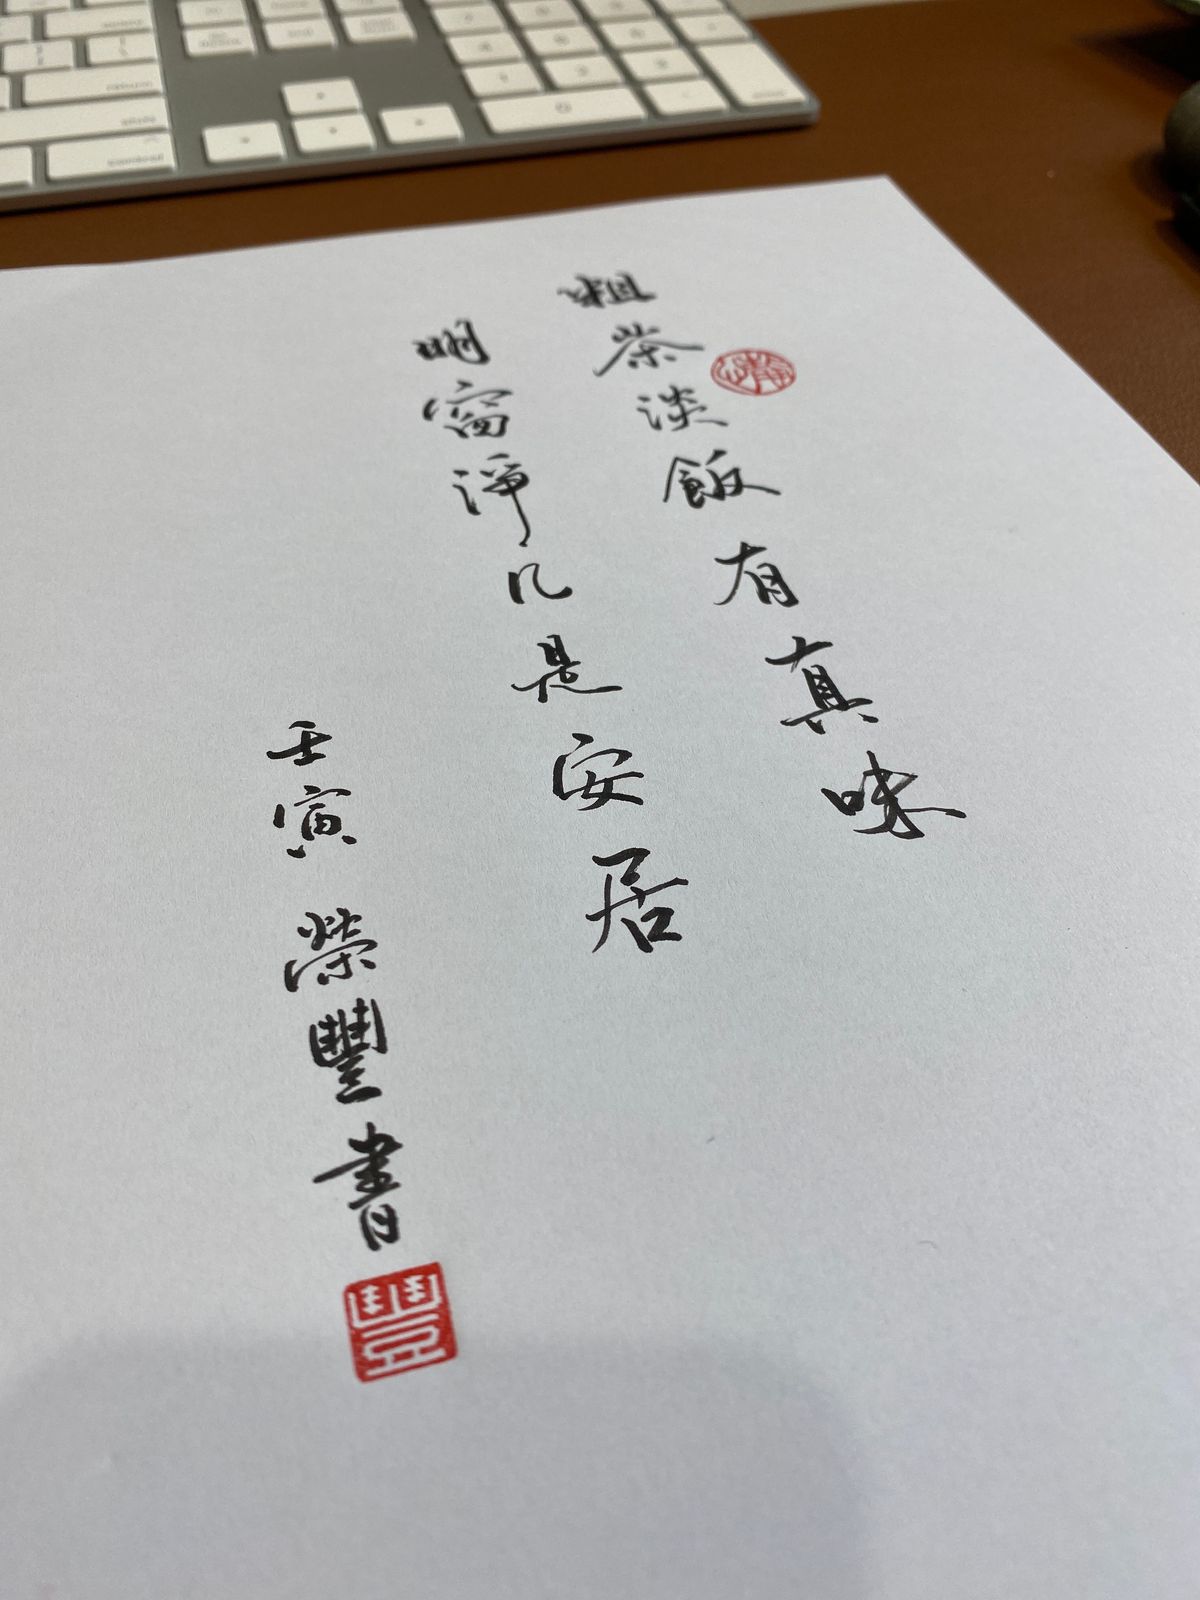 粗茶淡飯有真味
明窗淨几是安居
壬寅 榮豐書
豐